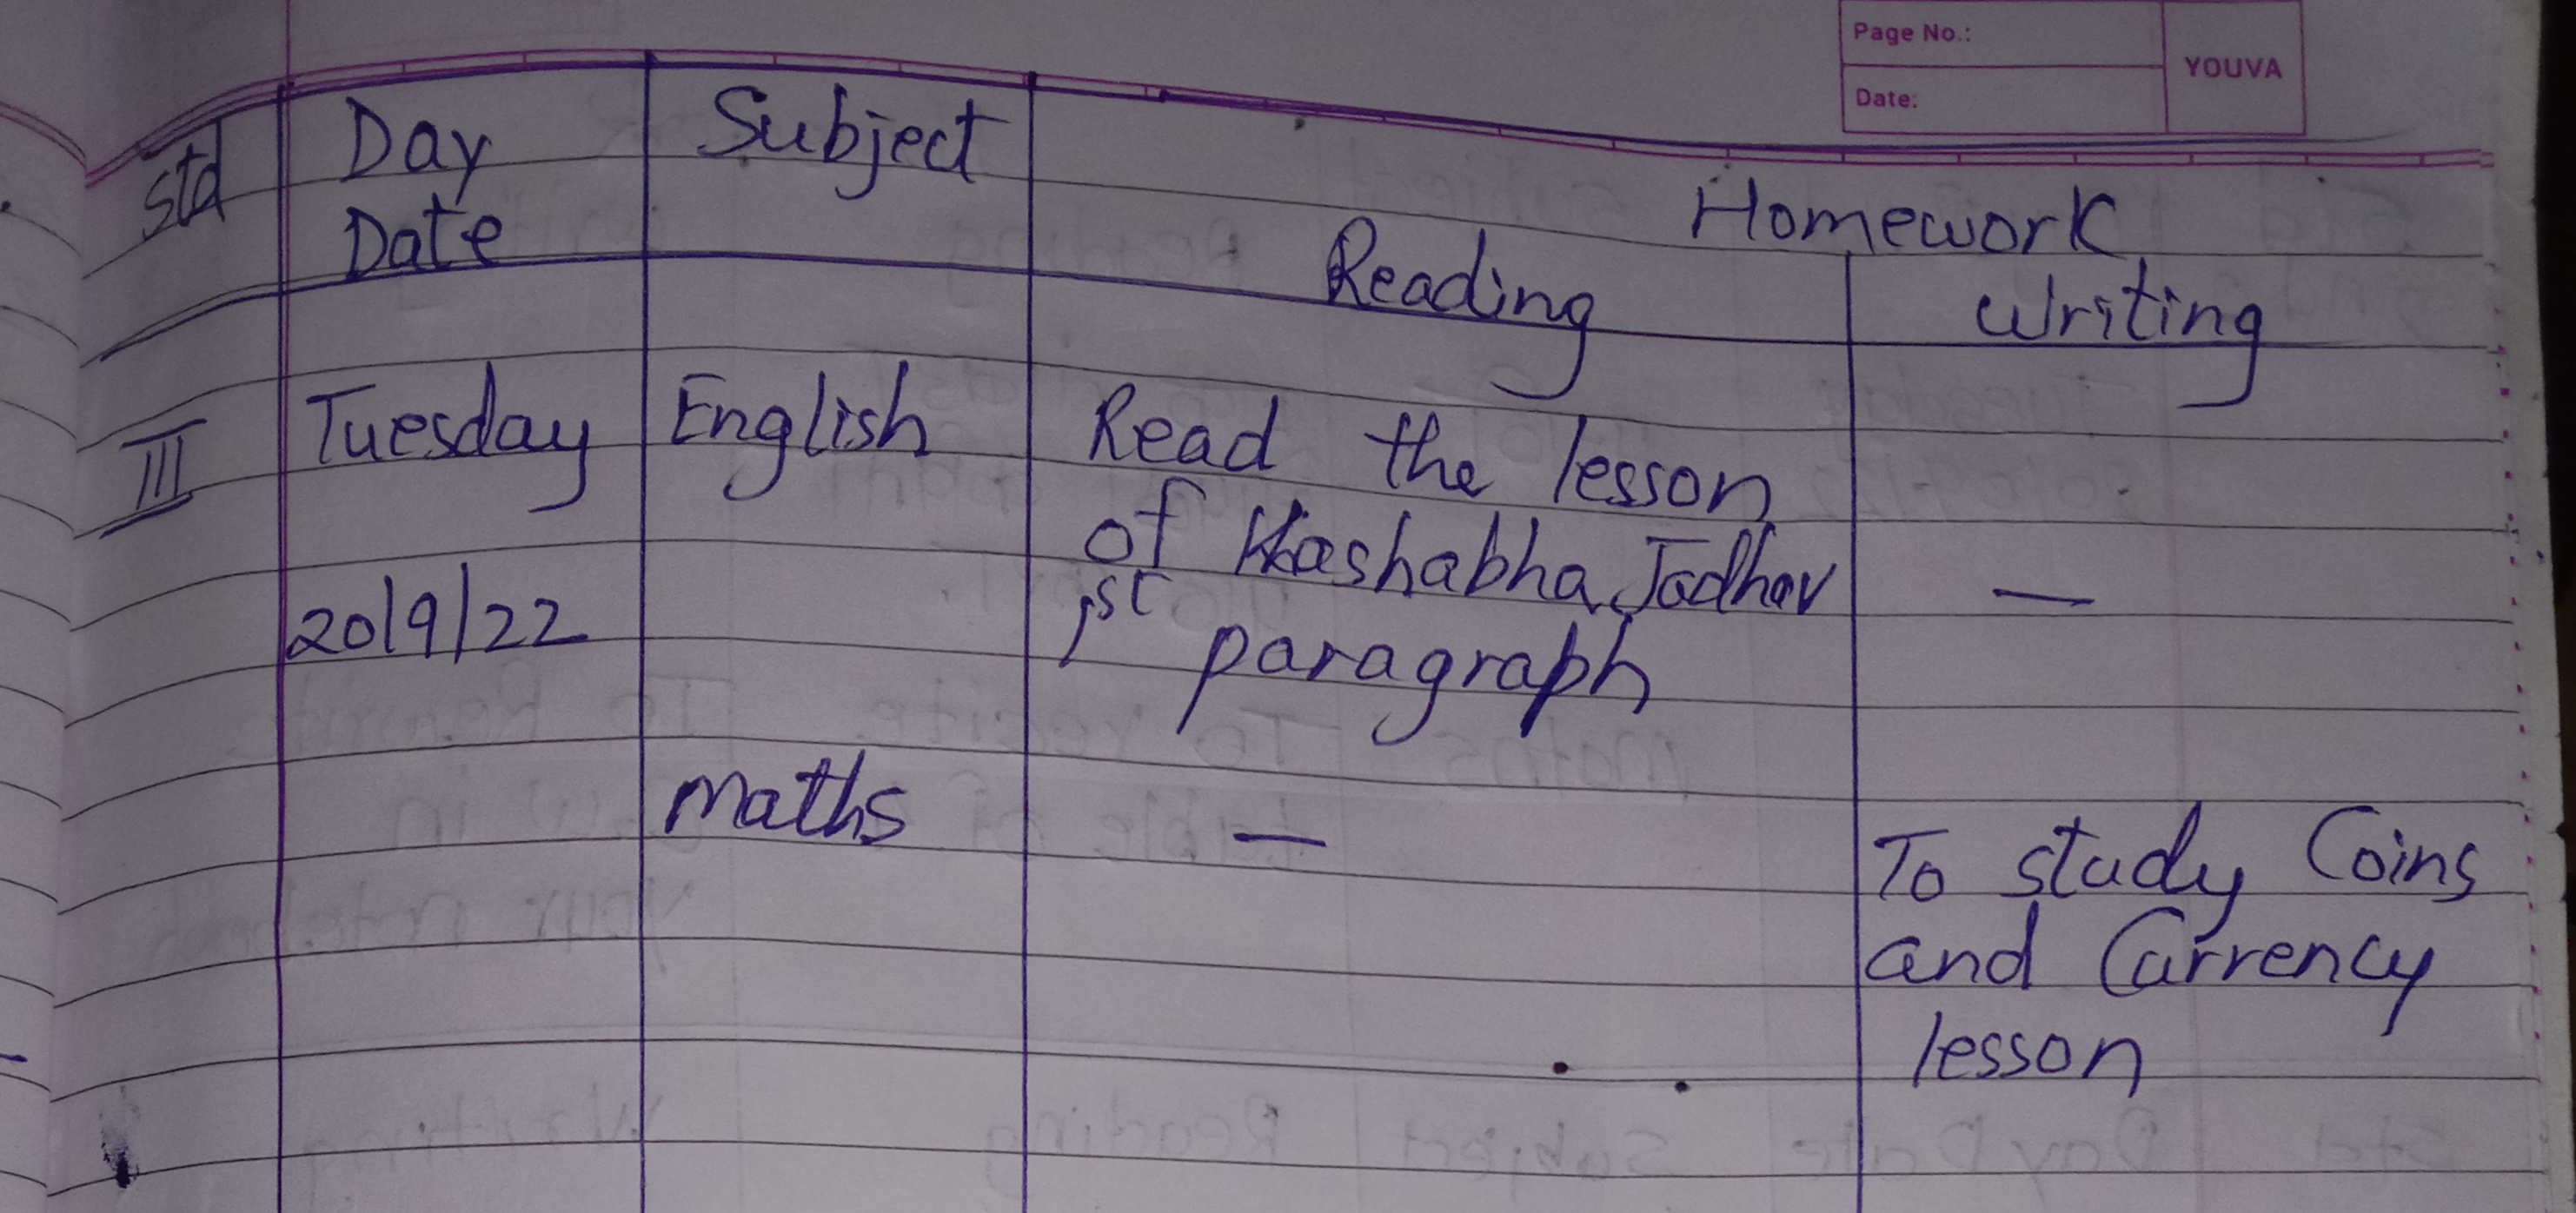 Page No.:
YOUVA
Date:
Std Day Subject
Date Homework
Reading Writing
III Tuesday English Read the lesson
of Kashabha Jadhav
20/9/22 1st paragraph —
Maths — To study Coins
and Currency
lesson